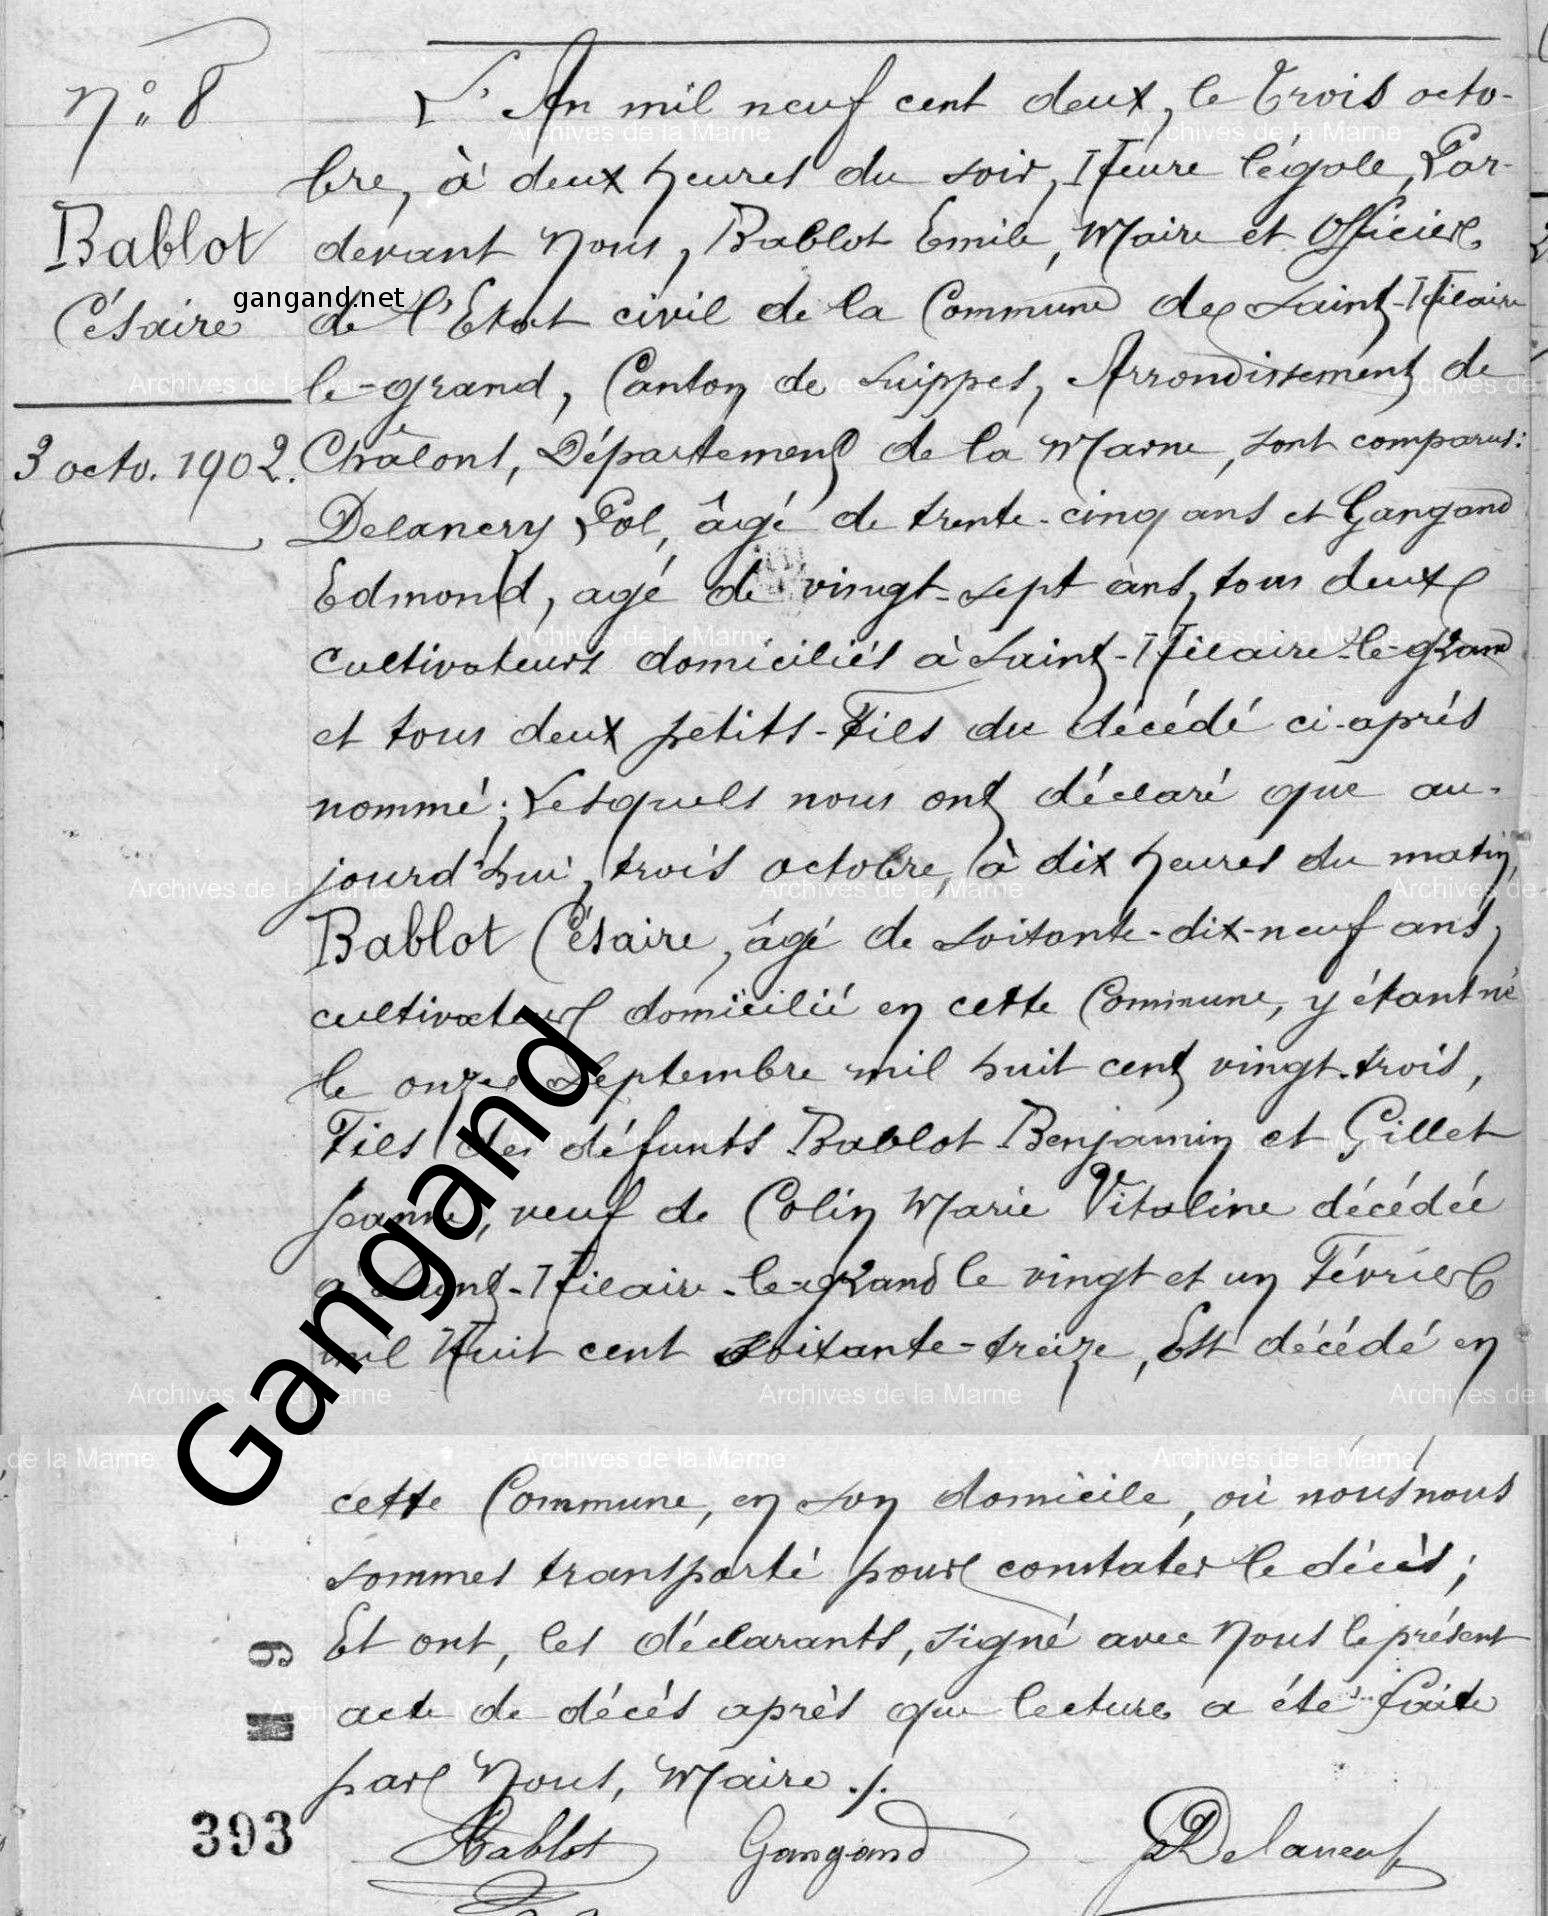 N° 8
Bablot
Césaire
3 octo. 1902.
L'An mil neuf cent deux, le Trois octo-
bre, à deux heures du soir, Heure légale, Par-
devant Nous, Bablot Emile, Maire et Officier
de l'Etat civil de la Commune de Saint-Hilaire
le-grand, Canton de Suippes, Arrondissement de
Châlons, Département de la Marne, sont comparus:
Delanery Pol, âgé de trente-cinq ans et Gangand
Edmond, agé de vingt-sept ans, tous deux
cultivateurs domiciliés à Saint-Hilaire-le-grand
et tous deux petits-Fils du décédé ci-après
nommé; Lesquels nous ont déclaré que au-
jourd'hui, trois octobre, à dix heures du matin,
Bablot Césaire, âgé de soixante-dix-neuf ans,
cultivateur domicilié en cette Commune, y étant né
le onze Septembre mil huit cent vingt-trois,
Fils des défunts Bablot Benjamin et Gillet
Jeanne, veuf de Colin Marie Vitaline décédée
à Saint-Hilaire-le-grand le vingt et un Février
mil Huit cent soixante-treize, Est décédé en
cette Commune, en son domicile, où nous nous
sommes transporté pour constater le décès;
Et ont, les déclarants, signé avec Nous le présent
acte de décès après que lecture a été faite
par Nous, Maire ./.
Bablot Gangand Delanery
393
gangand.net
Gangand
Archives de la Marne